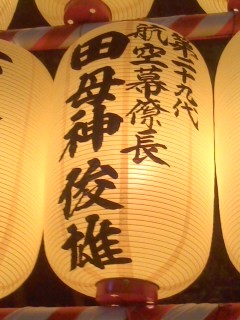 第二十九代
航空幕僚長
田母神俊雄